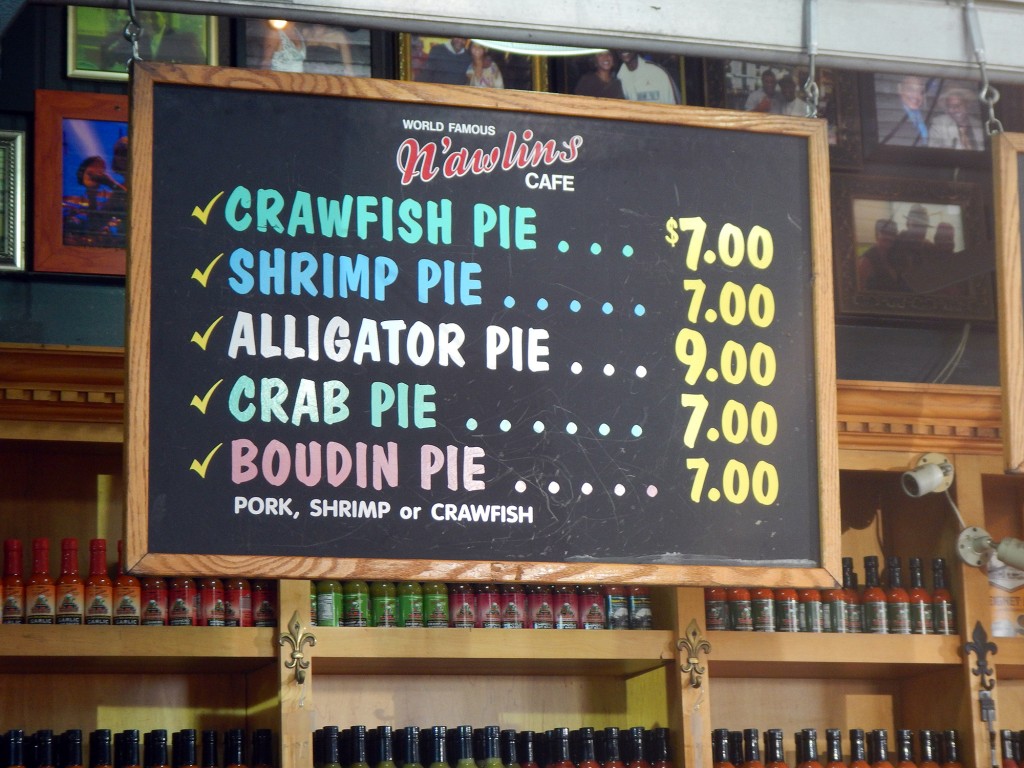 WORLD FAMOUS
N'awlins
CAFE
✓ CRAWFISH PIE . . . $7.00
✓ SHRIMP PIE . . . . . 7.00
✓ ALLIGATOR PIE . . . 9.00
✓ CRAB PIE . . . . . . 7.00
✓ BOUDIN PIE . . . . . 7.00
PORK, SHRIMP or CRAWFISH